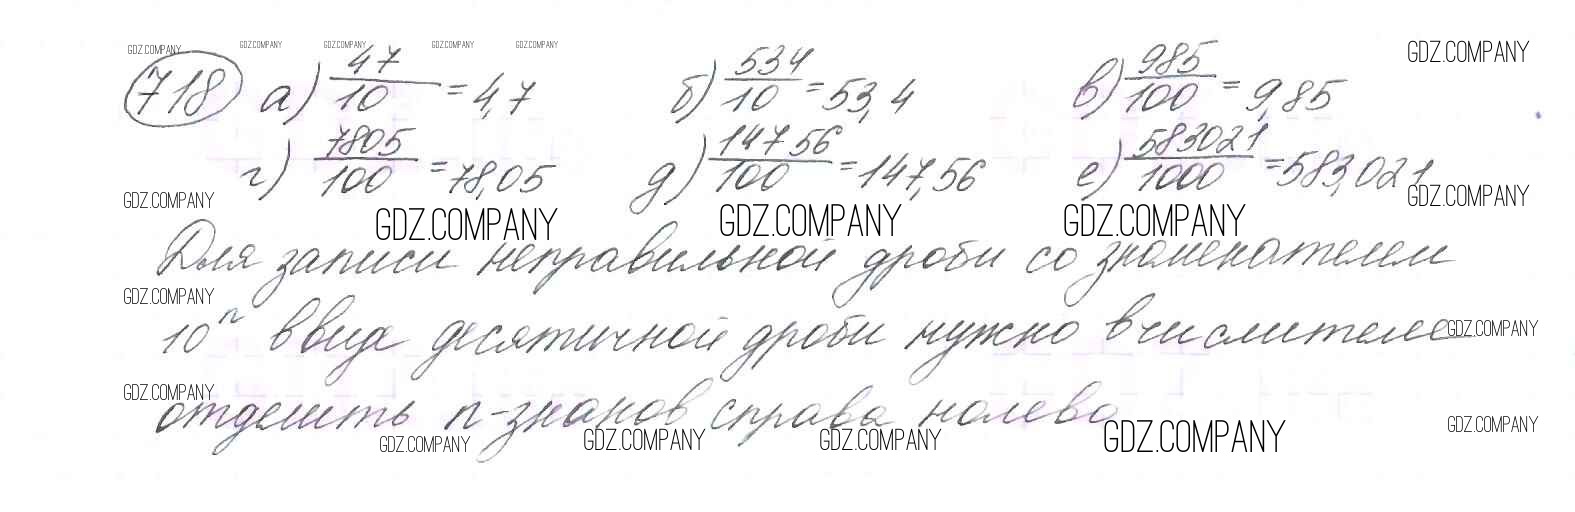 GDZ.COMPANY GDZ.COMPANY GDZ.COMPANY GDZ.COMPANY GDZ.COMPANY GDZ.COMPANY
718 а) 47/10 = 4,7 б) 534/10 = 53,4 в) 985/100 = 9,85
г) 7805/100 = 78,05 д) 14756/100 = 147,56 е) 583021/1000 = 583,021
GDZ.COMPANY GDZ.COMPANY
GDZ.COMPANY GDZ.COMPANY GDZ.COMPANY
Для записи неправильной дроби со знаменателем
GDZ.COMPANY
10ⁿ в виде десятичной дроби нужно в числителе
GDZ.COMPANY
GDZ.COMPANY
отделить n-знаков справа налево
GDZ.COMPANY
GDZ.COMPANY GDZ.COMPANY GDZ.COMPANY GDZ.COMPANY